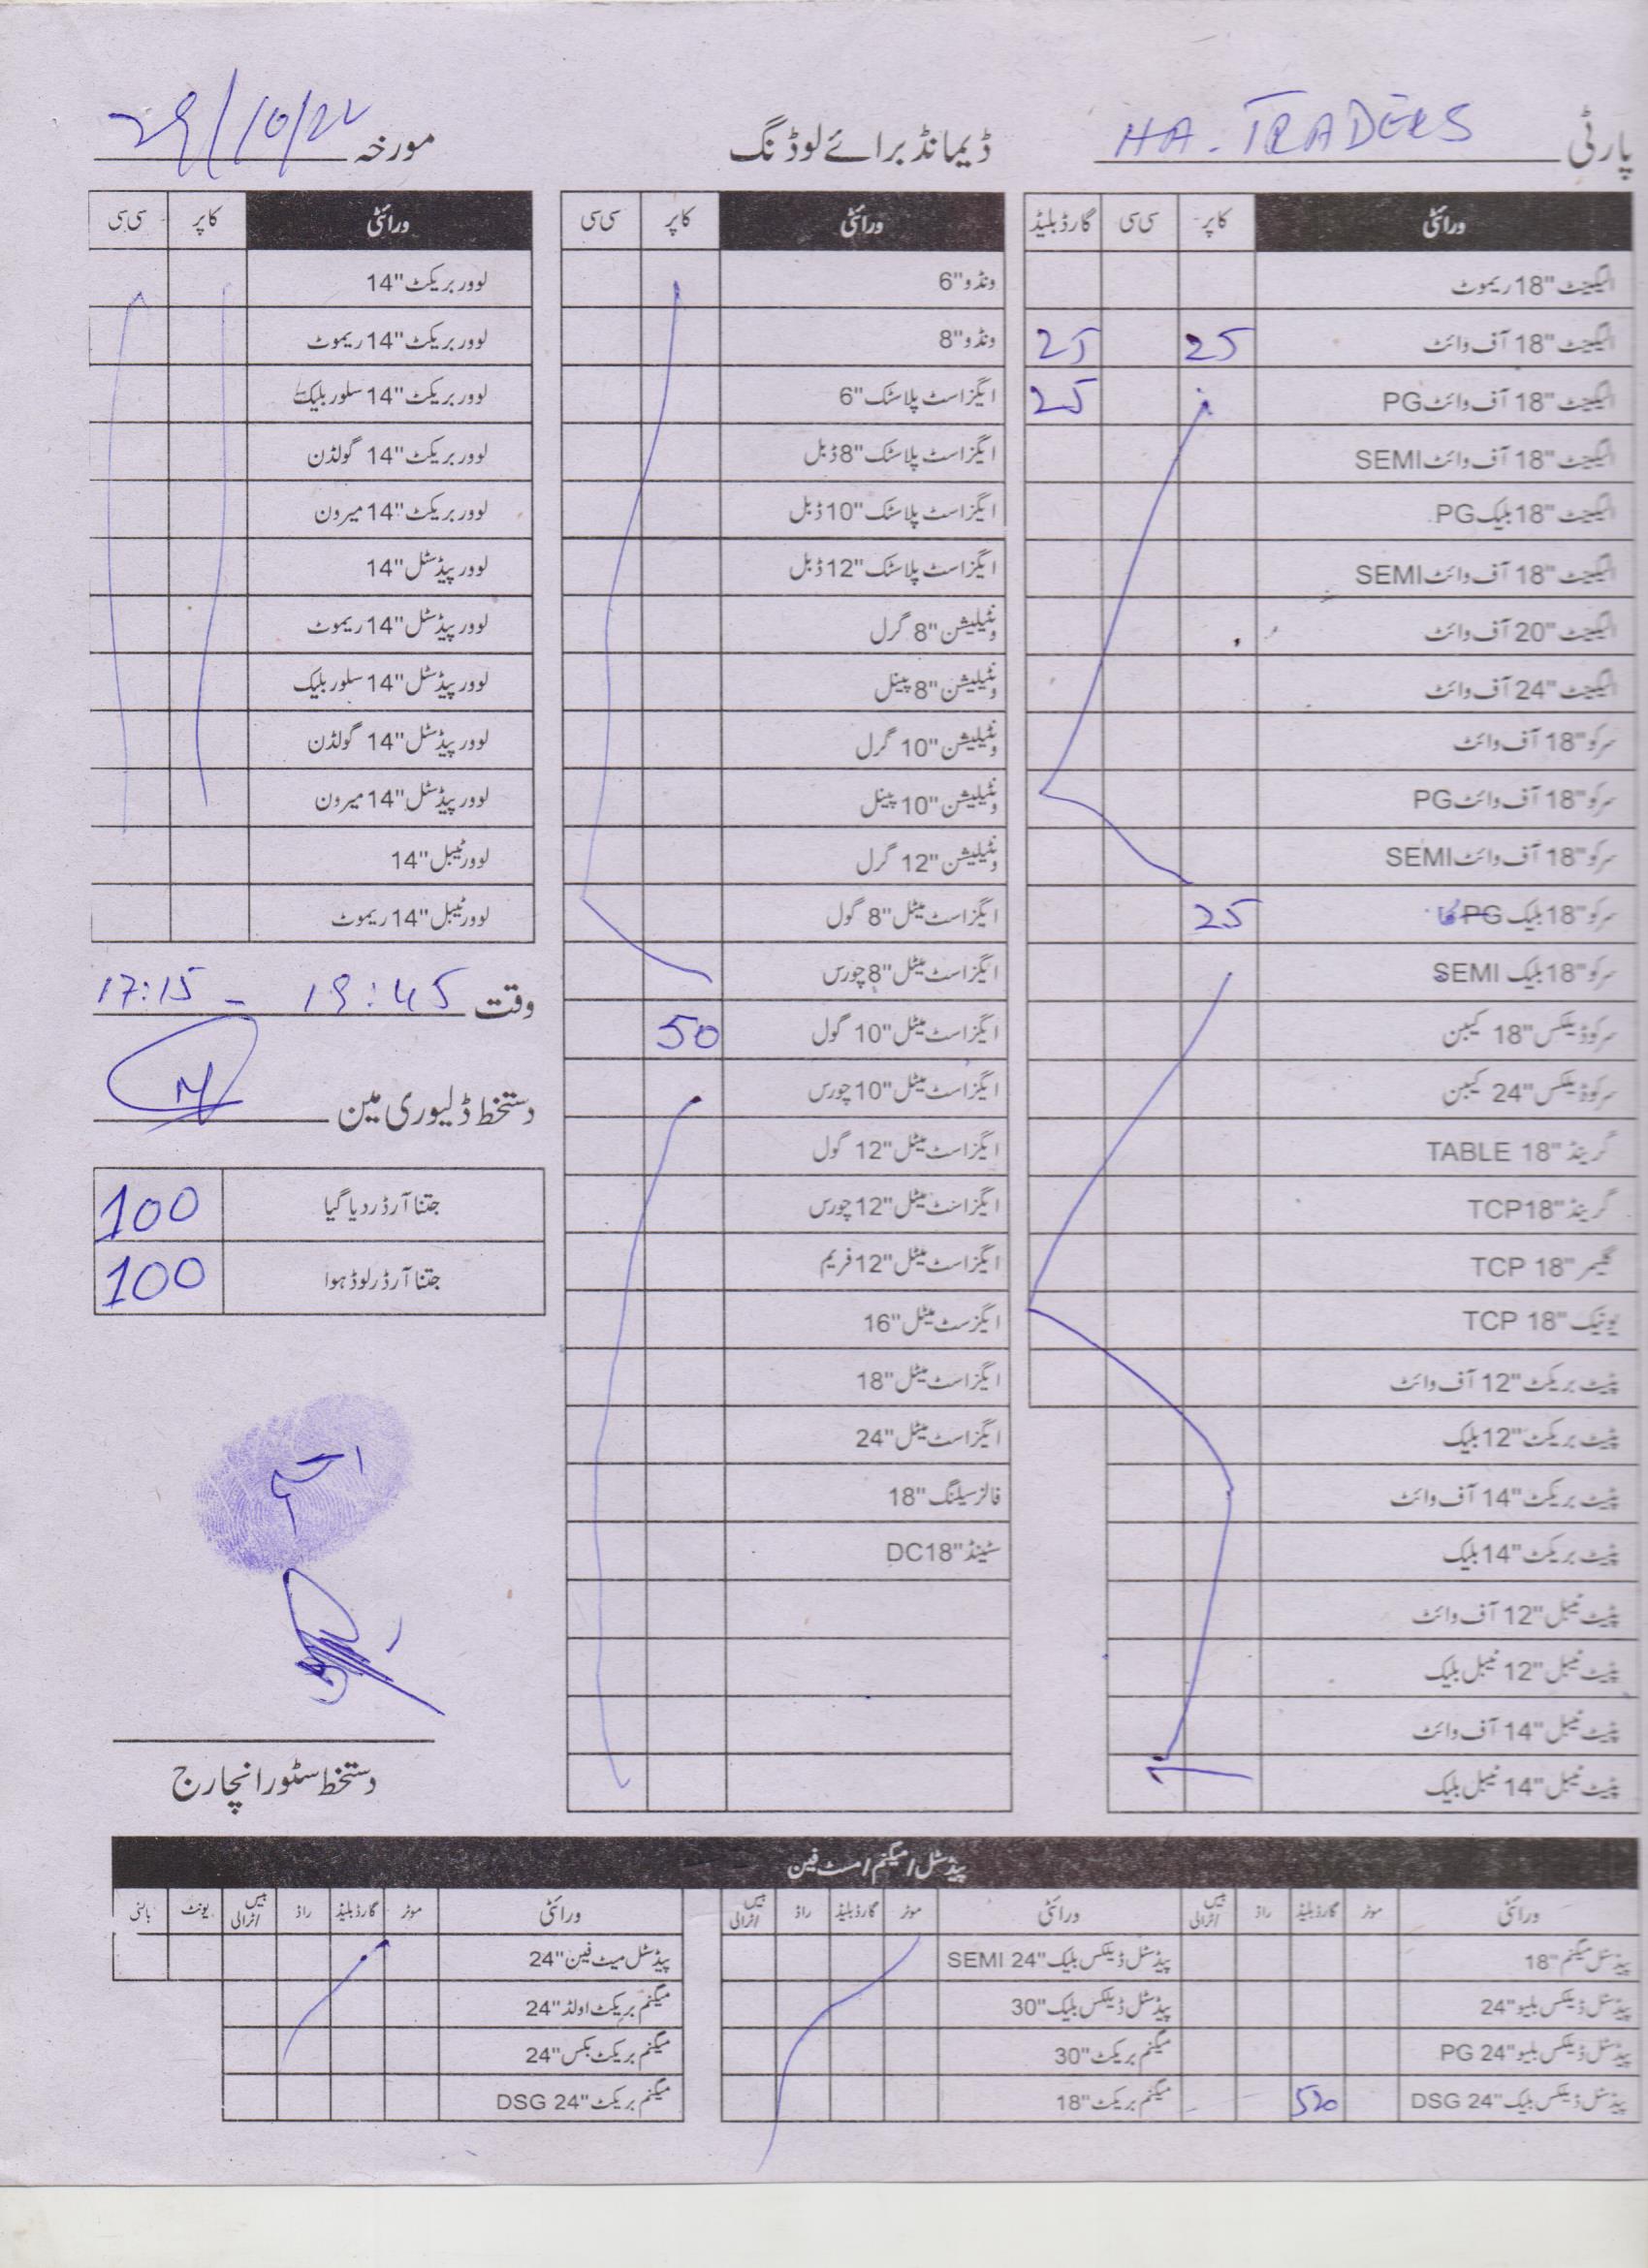 پارٹی HA. TRADERS
ڈیمانڈ برائے لوڈنگ
مورخہ 29/10/22
ورائٹی کاپر سی سی گارڈ بلیڈ
الیگینٹ "18 ریموٹ
الیگینٹ "18 آف وائٹ 25 25
الیگینٹ "18 آف وائٹ PG 25
الیگینٹ "18 آف وائٹ SEMI
الیگینٹ "18 بلیک PG
الیگینٹ "18 آف وائٹ SEMI
الیگینٹ "20 آف وائٹ
الیگینٹ "24 آف وائٹ
سرکو "18 آف وائٹ
سرکو "18 آف وائٹ PG
سرکو "18 آف وائٹ SEMI
سرکو "18 بلیک PG 25
سرکو "18 بلیک SEMI
سرکو ڈیلکس "18 کیبن
سرکو ڈیلکس "24 کیبن
گرینڈ "18 TABLE
گرینڈ "18 TCP
گلیمر "18 TCP
یونیک "18 TCP
پٹیٹ بریکٹ "12 آف وائٹ
پٹیٹ بریکٹ "12 بلیک
پٹیٹ بریکٹ "14 آف وائٹ
پٹیٹ بریکٹ "14 بلیک
پٹیٹ ٹیبل "12 آف وائٹ
پٹیٹ ٹیبل "12 ٹیبل بلیک
پٹیٹ ٹیبل "14 آف وائٹ
پٹیٹ ٹیبل "14 ٹیبل بلیک
ورائٹی کاپر سی سی
ونڈو "6
ونڈو "8
ایگزاسٹ پلاسٹک "6
ایگزاسٹ پلاسٹک "8 ڈبل
ایگزاسٹ پلاسٹک "10 ڈبل
ایگزاسٹ پلاسٹک "12 ڈبل
ونٹیلیشن "8 گرل
ونٹیلیشن "8 پینل
ونٹیلیشن "10 گرل
ونٹیلیشن "10 پینل
ونٹیلیشن "12 گرل
ایگزاسٹ میٹل "8 گول
ایگزاسٹ میٹل "8 چورس
ایگزاسٹ میٹل "10 گول 50
ایگزاسٹ میٹل "10 چورس
ایگزاسٹ میٹل "12 گول
ایگزاسٹ میٹل "12 چورس
ایگزاسٹ میٹل "12 فریم
ایگزسٹ میٹل "16
ایگزاسٹ میٹل "18
ایگزاسٹ میٹل "24
فالز سیلنگ "18
سٹینڈ "18 DC
ورائٹی کاپر سی سی
لوور بریکٹ "14
لوور بریکٹ "14 ریموٹ
لوور بریکٹ "14 سلور بلیک
لوور بریکٹ "14 گولڈن
لوور بریکٹ "14 میرون
لوور پیڈسٹل "14
لوور پیڈسٹل "14 ریموٹ
لوور پیڈسٹل "14 سلور بلیک
لوور پیڈسٹل "14 گولڈن
لوور پیڈسٹل "14 میرون
لوور ٹیبل "14
لوور ٹیبل "14 ریموٹ
وقت 17:15 - 19:45
دستخط ڈلیوری مین
جتنا آرڈر دیا گیا 100
جتنا آرڈر لوڈ ہوا 100
دستخط سٹور انچارج
پیڈسٹل / میگنم / مسٹ فین
ورائٹی موٹر گارڈ بلیڈ راڈ بیس / ٹرالی
پیڈسٹل میگنم "18
پیڈسٹل ڈیلکس بلیو "24
پیڈسٹل ڈیلکس بلیو "24 PG
پیڈسٹل ڈیلکس بلیک "24 DSG
ورائٹی موٹر گارڈ بلیڈ راڈ بیس / ٹرالی
پیڈسٹل ڈیلکس بلیک "24 SEMI
پیڈسٹل ڈیلکس بلیک "30
میگنم بریکٹ "30
میگنم بریکٹ "18
ورائٹی موٹر گارڈ بلیڈ راڈ بیس / ٹرالی یونٹ بالٹی
پیڈسٹل میٹ فین "24
میگنم بریکٹ اولڈ "24
میگنم بریکٹ بکس "24
میگنم بریکٹ "24 DSG